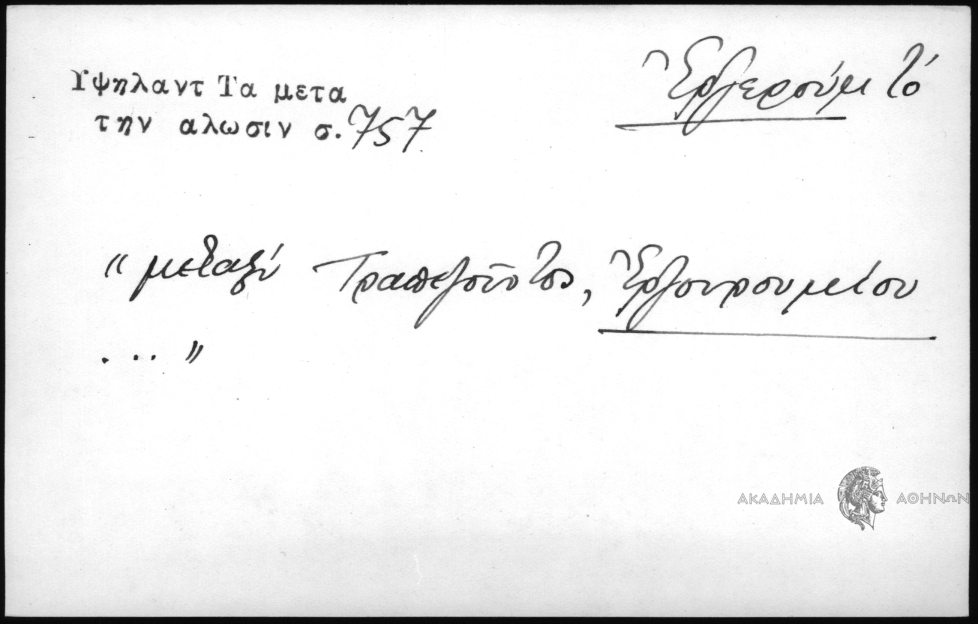 Υψηλαντ Τα μετα
την αλωσιν σ. 757
Ἐρζερούμ τό
“ μεταξύ Τραπεζοῦντος, Ἐρζουρουμίου
. . . ”
ΑΚΑΔΗΜΙΑ ΑΘΗΝΩΝ